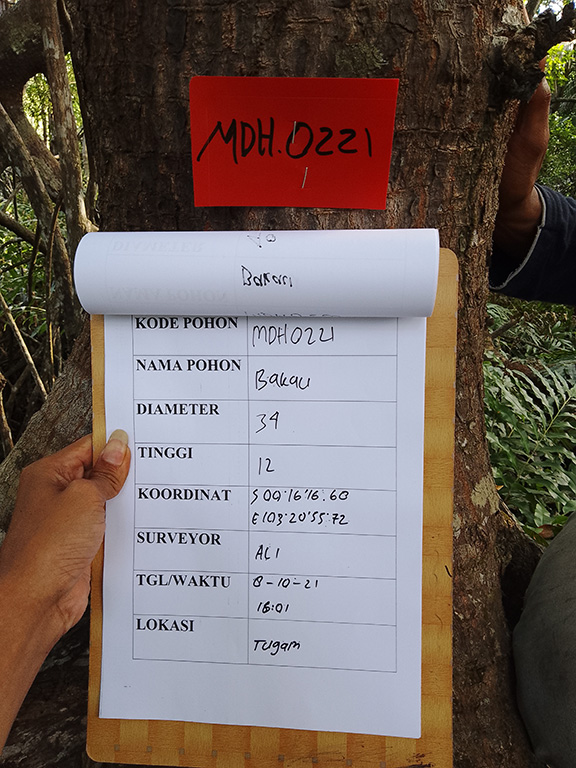 MDH.0221
Bakau
KODE POHON MDH0221
NAMA POHON Bakau
DIAMETER 34
TINGGI 12
KOORDINAT S 00°16'16.60
E103°20'55.72
SURVEYOR ALI
TGL/WAKTU 8-10-21
16:01
LOKASI Tugam